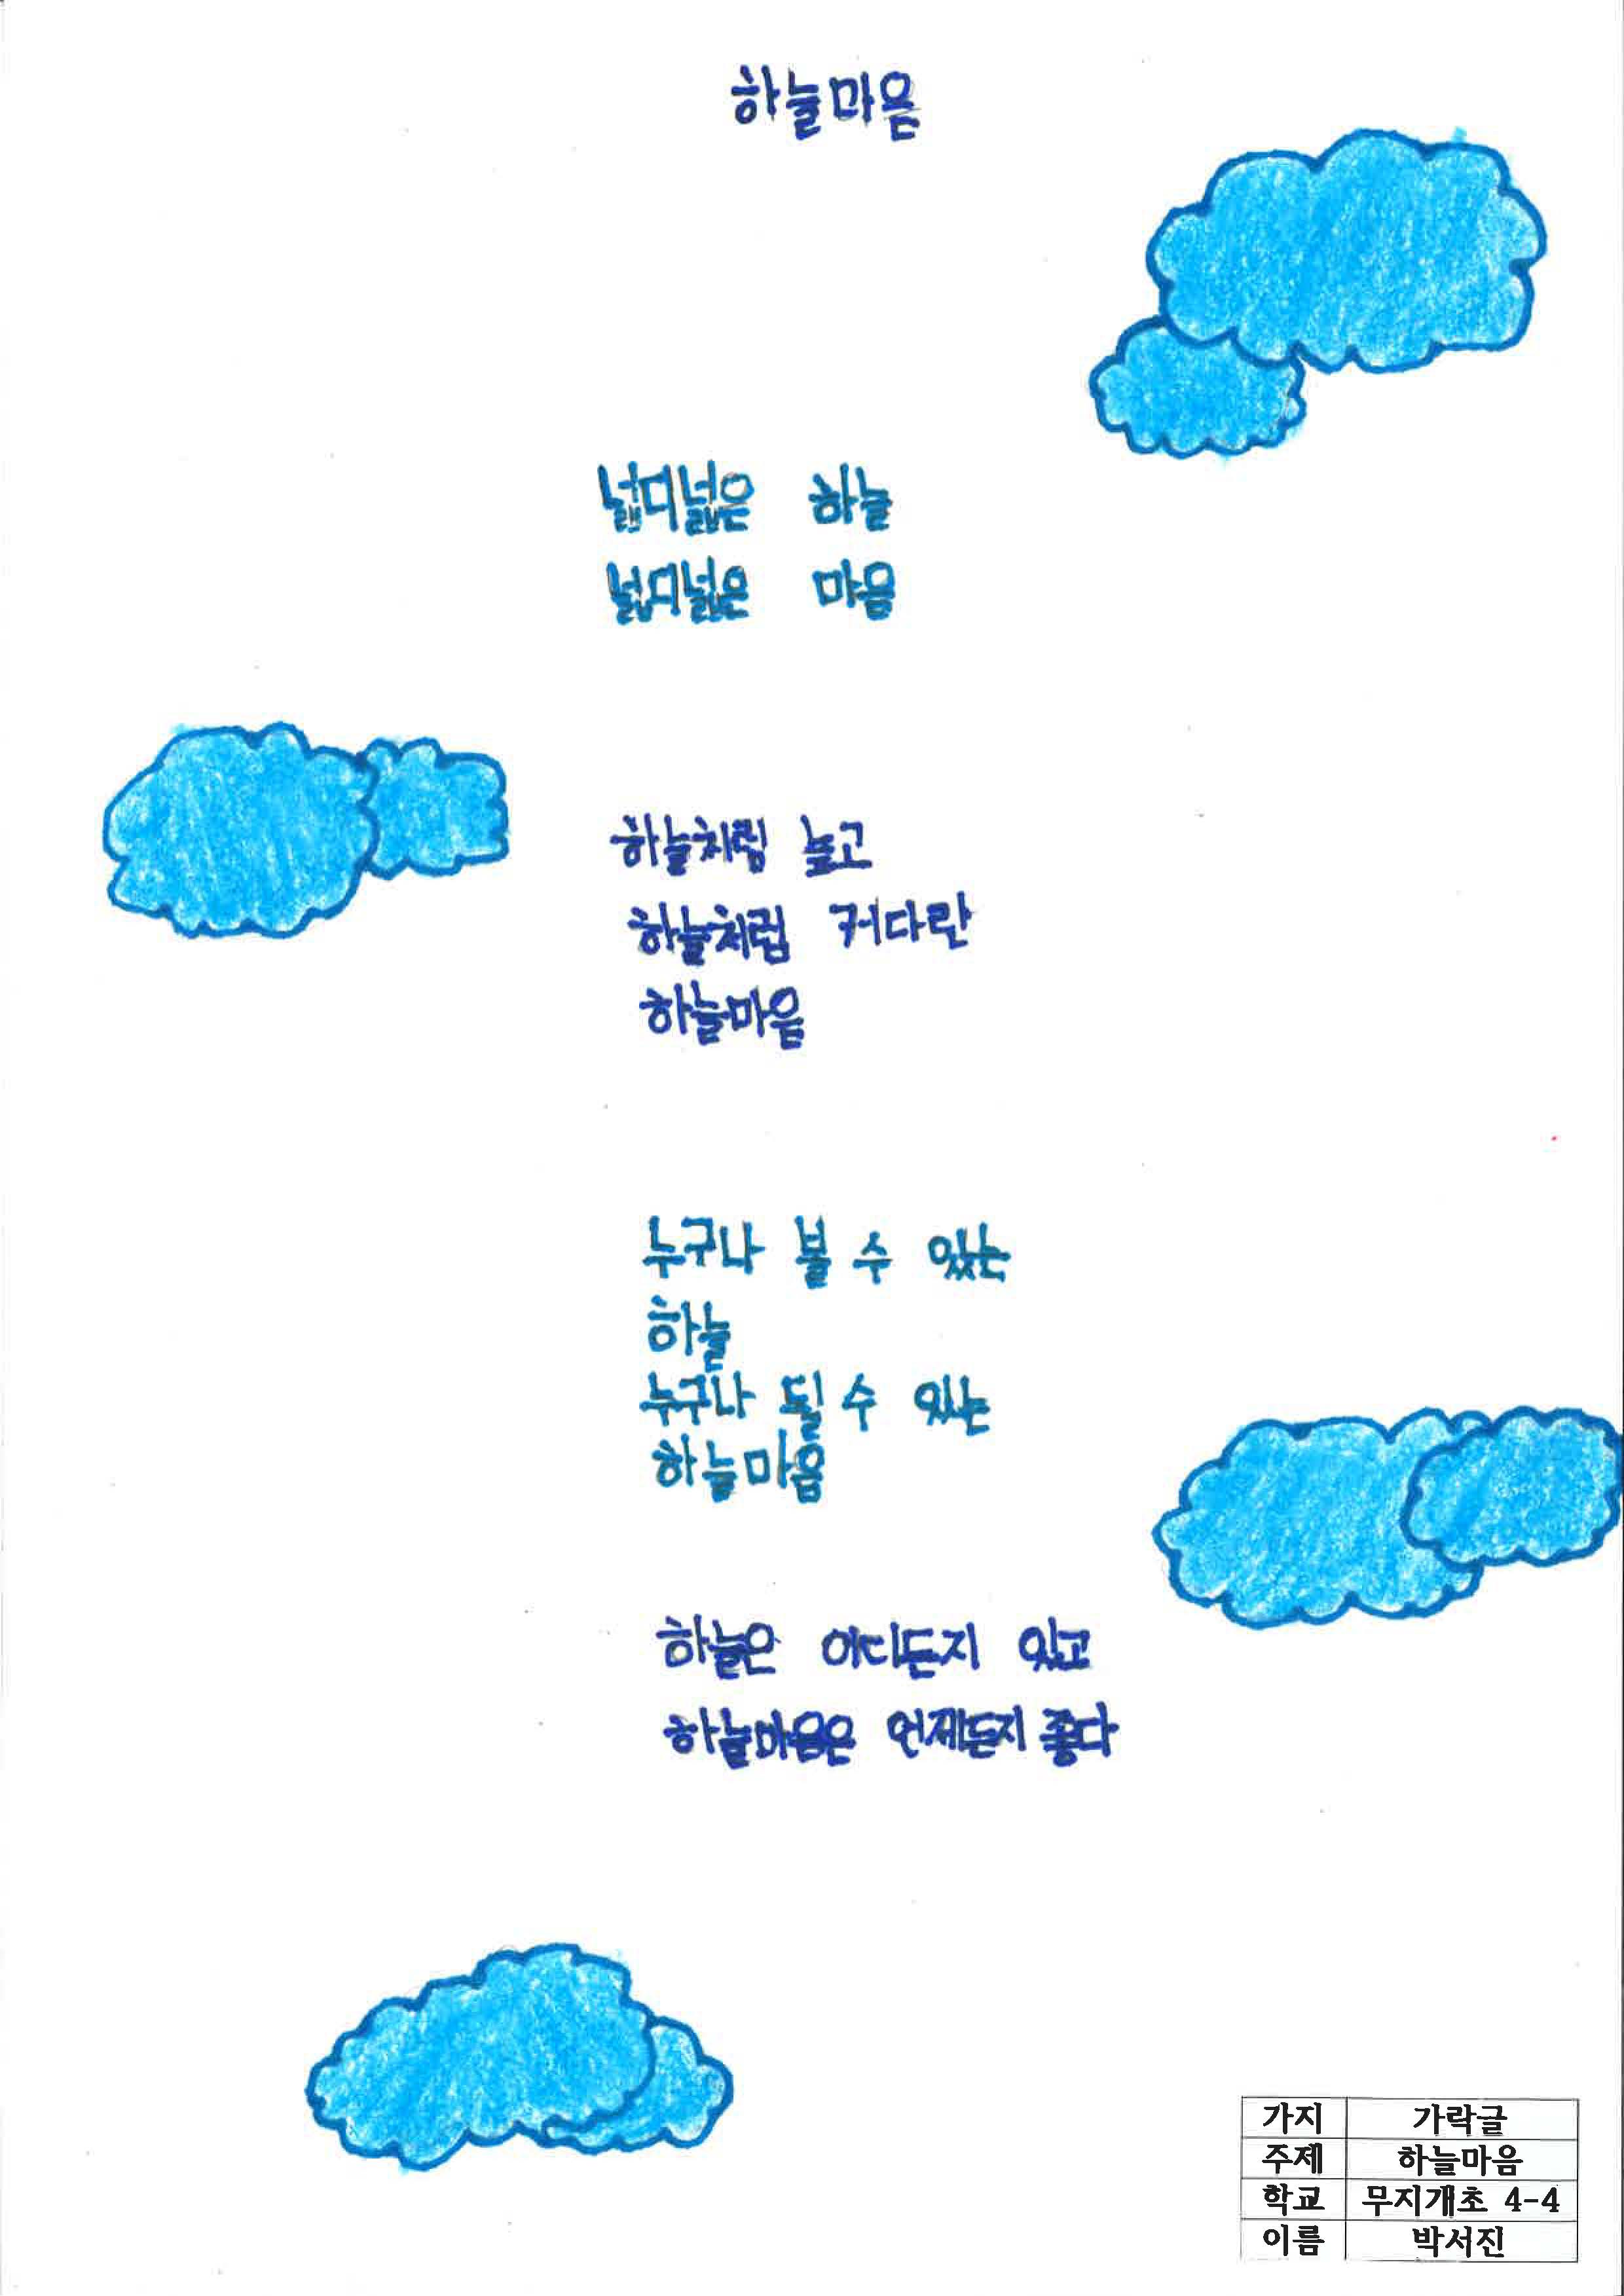 하늘마음
넓디넓은 하늘
넓디넓은 마음
하늘처럼 높고
하늘처럼 커다란
하늘마음
누구나 볼 수 있는
하늘
누구나 될 수 있는
하늘마음
하늘은 어디든지 있고
하늘마음은 언제든지 좋다
가지 가락글
주제 하늘마음
학교 무지개초 4-4
이름 박서진